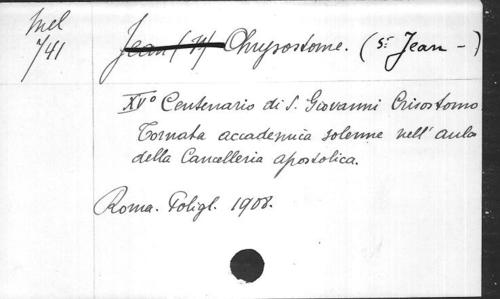 Mel
741
Jean (St) Chrysostome. (St Jean -)
XVº Centenario di S. Giovanni Crisostomo
Tornata accademica solenne nell' aula
della Cancelleria apostolica.
Roma. Poligl. 1908.